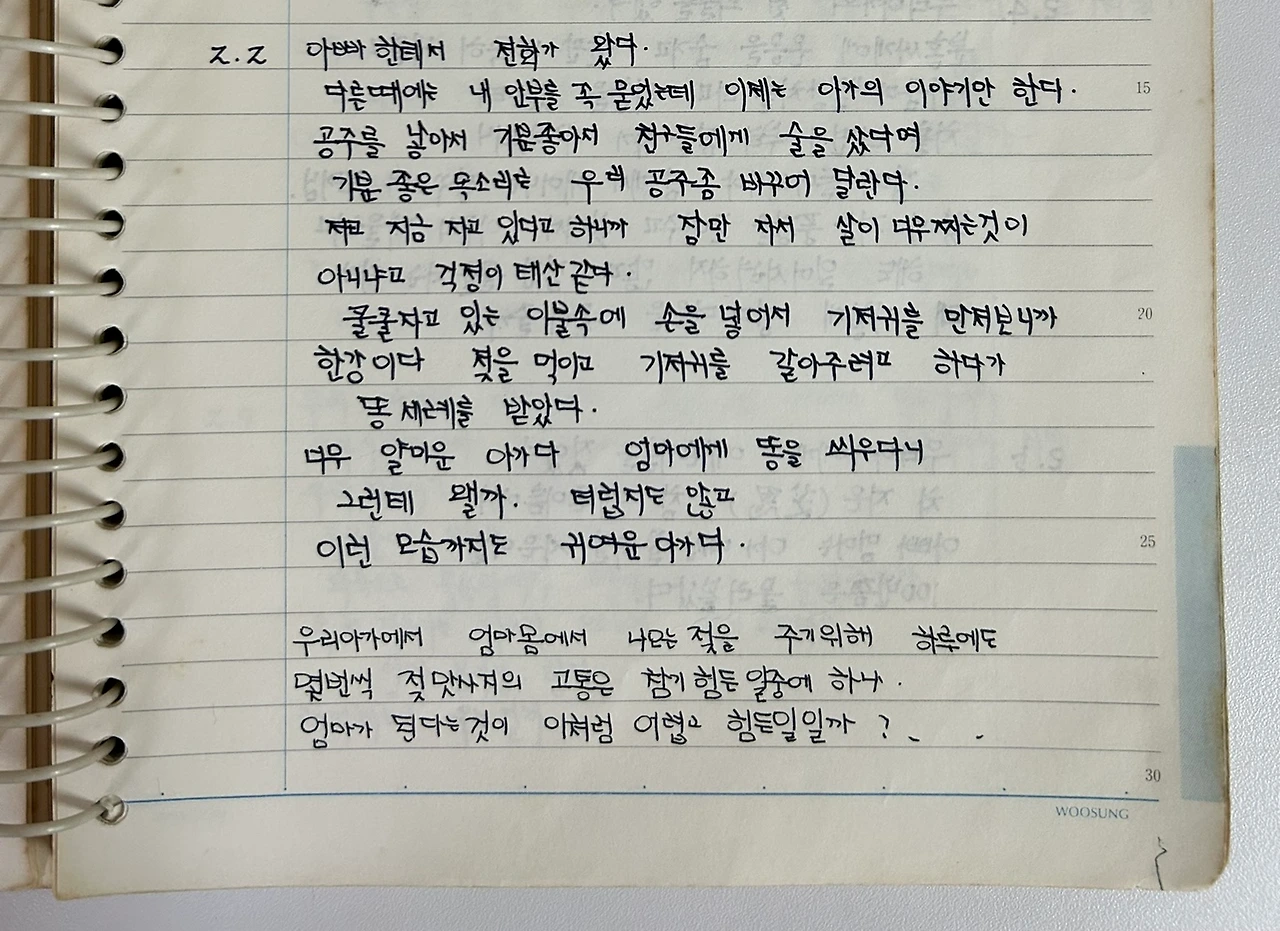 2.2 아빠한테서 전화가 왔다.
다른때에는 내 안부를 꼭 묻었는데 이제는 아가의 이야기만 한다. 15
공주를 낳아서 기분좋아서 친구들에게 술을 샀다며
기분 좋은 목소리는 우리 공주좀 바꾸어 달란다.
자고 지금 자고 있다고 하니까 잠만 자서 살이 너무찌는것이
아니냐고 걱정이 태산 같다.
콜콜자고 있는 이불속에 손을 넣어서 기저귀를 만져보니까 20
한강이다 젖을 먹이고 기저귀를 갈아주려고 하다가
똥 세례를 받았다.
너무 얄미운 아가다 엄마에게 똥을 씌우다니
그런데 왤까. 더럽지도 않고
이런 모습까지도 귀여운 아가다. 25
우리아가에서 엄마몸에서 나오는 젖을 주기위해 하루에도
몇번씩 젖맛사지의 고통은 참기 힘든 일중에 하나.
엄마가 된다는것이 이처럼 어렵고 힘든일일까?
30
WOOSUNG